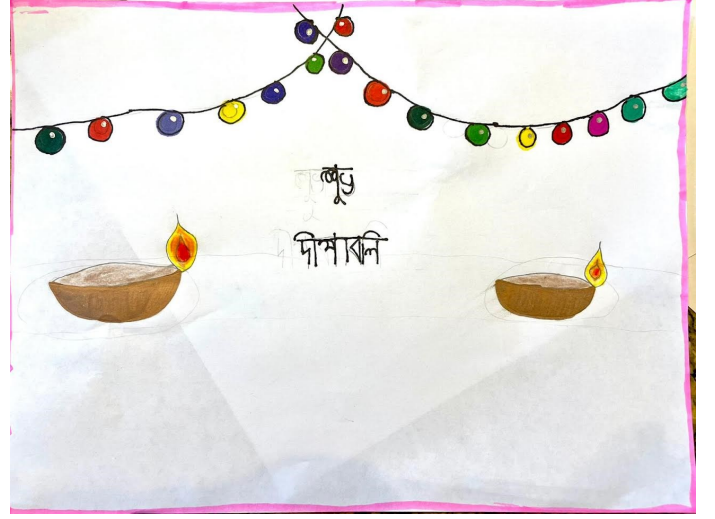 শুভ
দীপাবলি